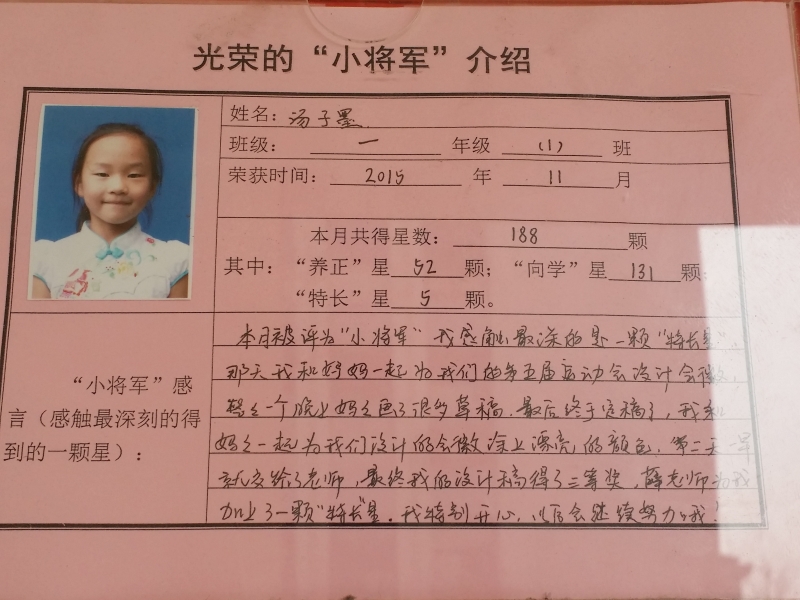 光荣的“小将军”介绍
姓名：汤子墨
班级： 一 年级 （1） 班
荣获时间： 2015 年 11 月
本月共得星数： 188 颗
其中：“养正”星 52 颗；“向学”星 131 颗；
“特长”星 5 颗。
“小将军”感
言（感触最深刻的得
到的一颗星）：
本月被评为“小将军”我感触最深的是一颗“特长星”，
那天我和妈妈一起为我们的第五届运动会设计会徽，
整整一个晚上妈妈画了很多草稿，最后终于定稿了，我和
妈妈一起为我们设计的会徽涂上漂亮的颜色，第二天一早
就交给了老师，最终我的设计稿得了三等奖，薛老师为我
加上了一颗“特长”星，我特别开心，以后会继续努力哦！